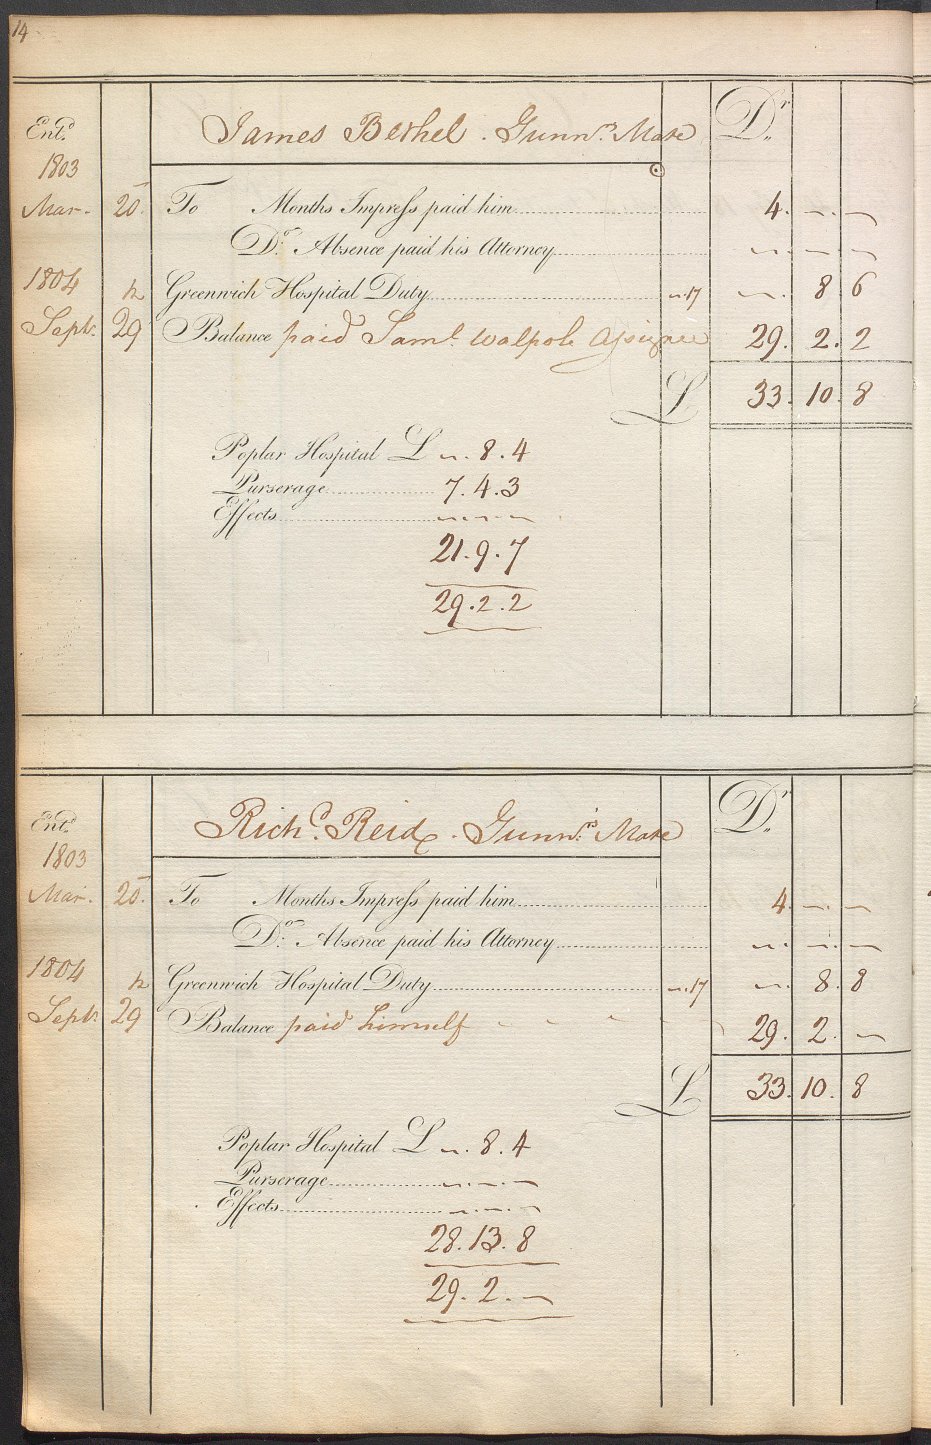 14
Ent.d James Bethel . Gunn.rs Mate Dr.
1803
Mar. 25. To Months Impress paid him 4. ~. ~
Do. Absence paid his Attorney ~. ~. ~
1804 Greenwich Hospital Duty ~.17 ~. 8. 6
Sept.r 29 Balance paid Sam.l Walpole Assignee 29. 2. 2
£ 33. 10. 8
Poplar Hospital £ ~. 8. 4
Purserage 7. 4. 3
Effects ~. ~. ~
21. 9. 7
29. 2. 2
Ent.d Rich.d Reid . Gunn.rs Mate Dr.
1803
Mar. 25. To Months Impress paid him 4. ~. ~
Do. Absence paid his Attorney ~. ~. ~
1804 Greenwich Hospital Duty ~.17 ~. 8. 8
Sept.r 29 Balance paid himself 29. 2. ~
£ 33. 10. 8
Poplar Hospital £ ~. 8. 4
Purserage ~. ~. ~
Effects ~. ~. ~
28. 13. 8
29. 2. ~